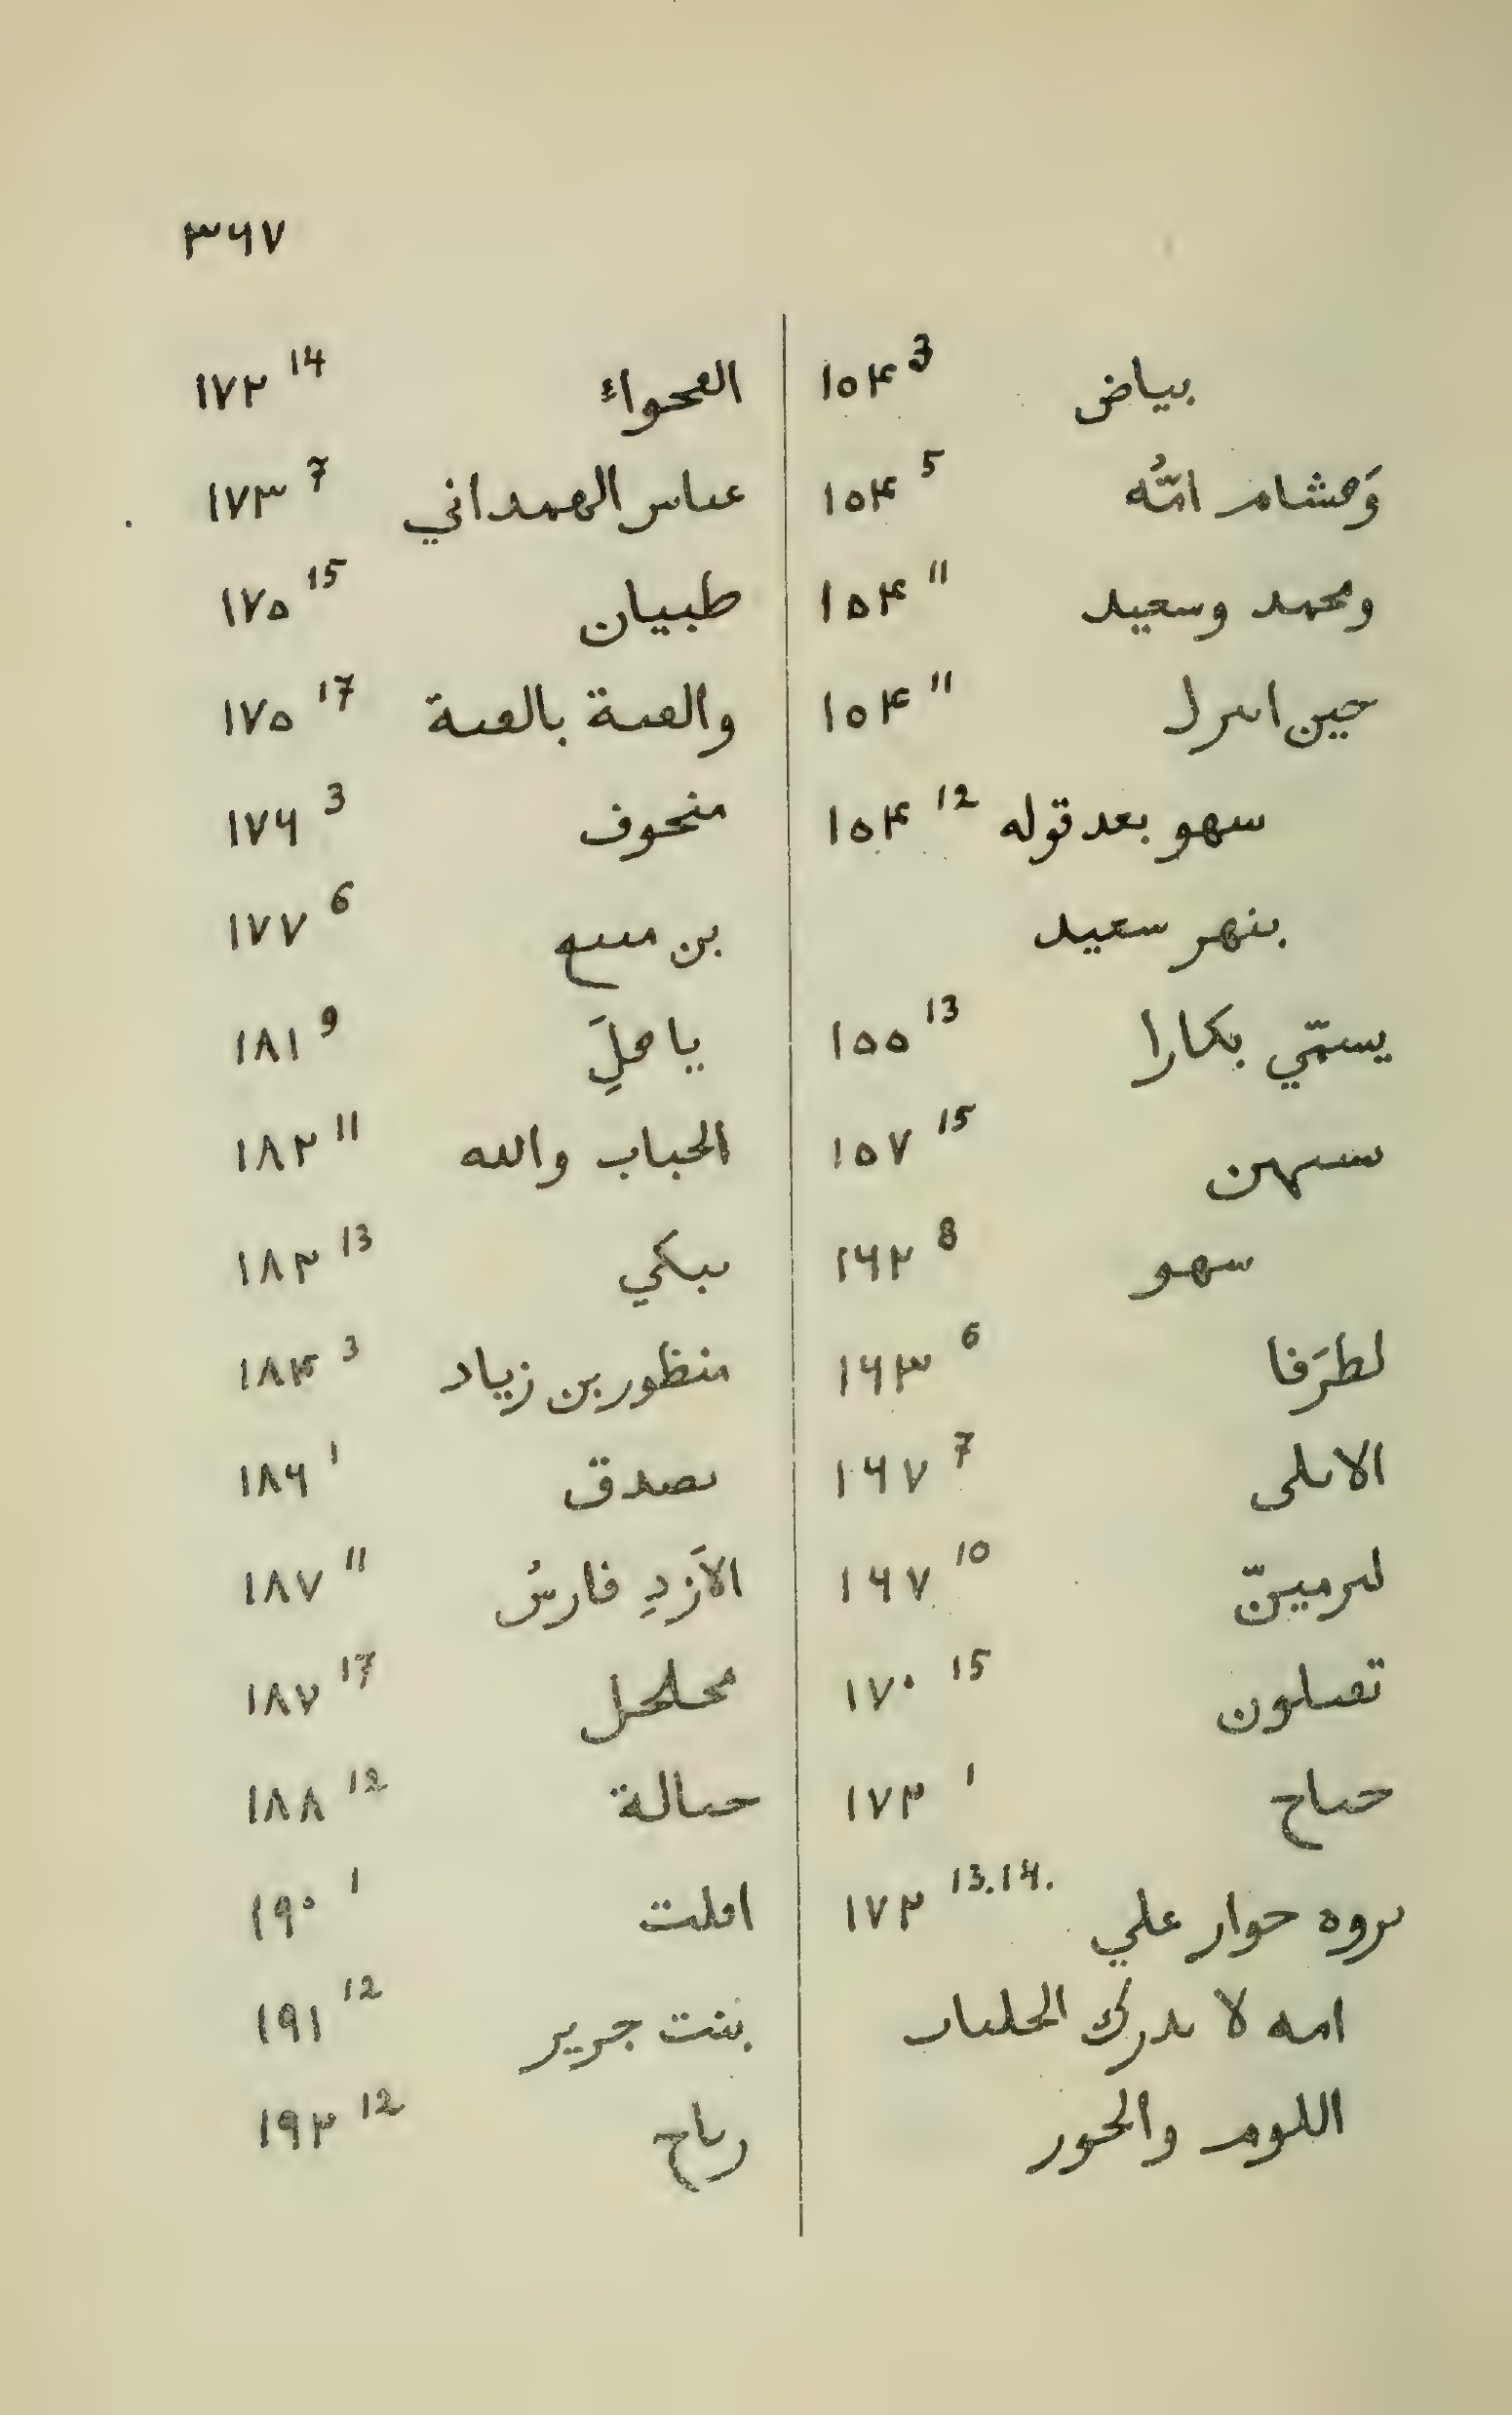 ٣٦٧
بياض ١٥٤ 3
وَهشام امُّه ١٥٤ 5
ومحمد وسعيد ١٥٤ 11
حين ١٥٤ 11
سهو بعد قوله ١٥٤ 12
بنهر سعيد
يسمّي بكارا ١٥٥ 13
١٥٧ 15
سهو ١٦٢ 8
لطرَفا ١٦٣ 6
الاٮلى ١٦٧ 7
لٮرمينّ ١٦٧ 10
١٧٠ 15
حٮاح ١٧٢ 1
ٮروه حوار علي ١٧٢ 13.14.
امه لا ٮدرك الحلٮاٮ
اللوم والحور
١٧٢ 14
عٮاس الهمداني ١٧٣ 7
طبيان ١٧٥ 15
١٧٥ 17
منحوف ١٧٦ 3
بن ١٧٧ 6
١٨١ 9
الحباب والله ١٨٢ 11
ٮبكي ١٨٣ 13
منظور بن زياد ١٨٤ 3
ٮصدق ١٨٦ 1
الاَزدِ فارسُ ١٨٧ 11
محلحل ١٨٧ 17
حٮالة ١٨٨ 12
١٩٠ 1
بنت جرير ١٩١ 12
رٮاح ١٩٣ 12